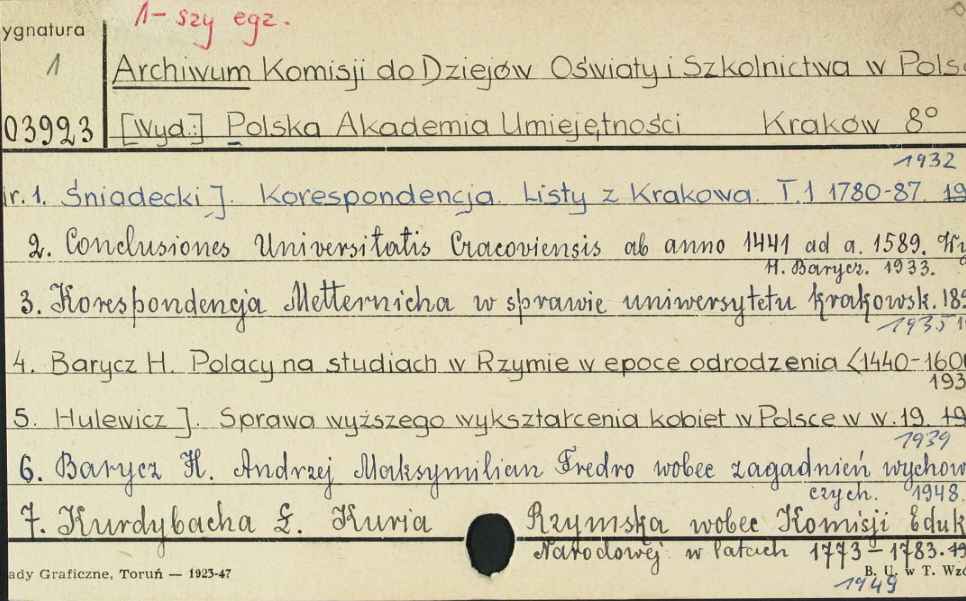 1-szy egz.
ygnatura
1
Archiwum Komisji do Dziejów Oświaty i Szkolnictwa w Pols
03923 [Wyd.:] Polska Akademia Umiejętności Kraków 8°
1932
nr. 1. Śniadecki J. Korespondencja. Listy z Krakowa. T. 1 1780-87. 19
2. Conclusiones Universitatis Cracoviensis ab anno 1441 ad a. 1589. Wy
H. Barycz. 1933.
3. Korespondencja Metternicha w sprawie uniwersytetu krakowsk. 18
1935
4. Barycz H. Polacy na studiach w Rzymie w epoce odrodzenia (1440-1600
193
5. Hulewicz J. Sprawa wyższego wykształcenia kobiet w Polsce w w. 19. 19
1939
6. Barycz H. Andrzej Maksymilian Fredro wobec zagadnień wychow
czych. 1948.
7. Kurdybacha Ł. Kuria Rzymska wobec Komisji Eduk
Narodowej w latach 1773-1783. 19
ady Graficzne, Toruń — 1923-47 B. U. w T. Wzó
1949